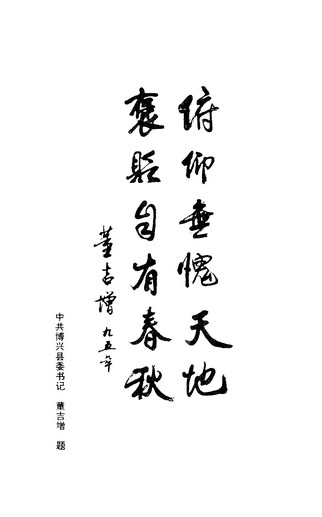 俯仰无愧天地
褒贬自有春秋
董吉增 九五年
中共博兴县委书记 董吉增 题